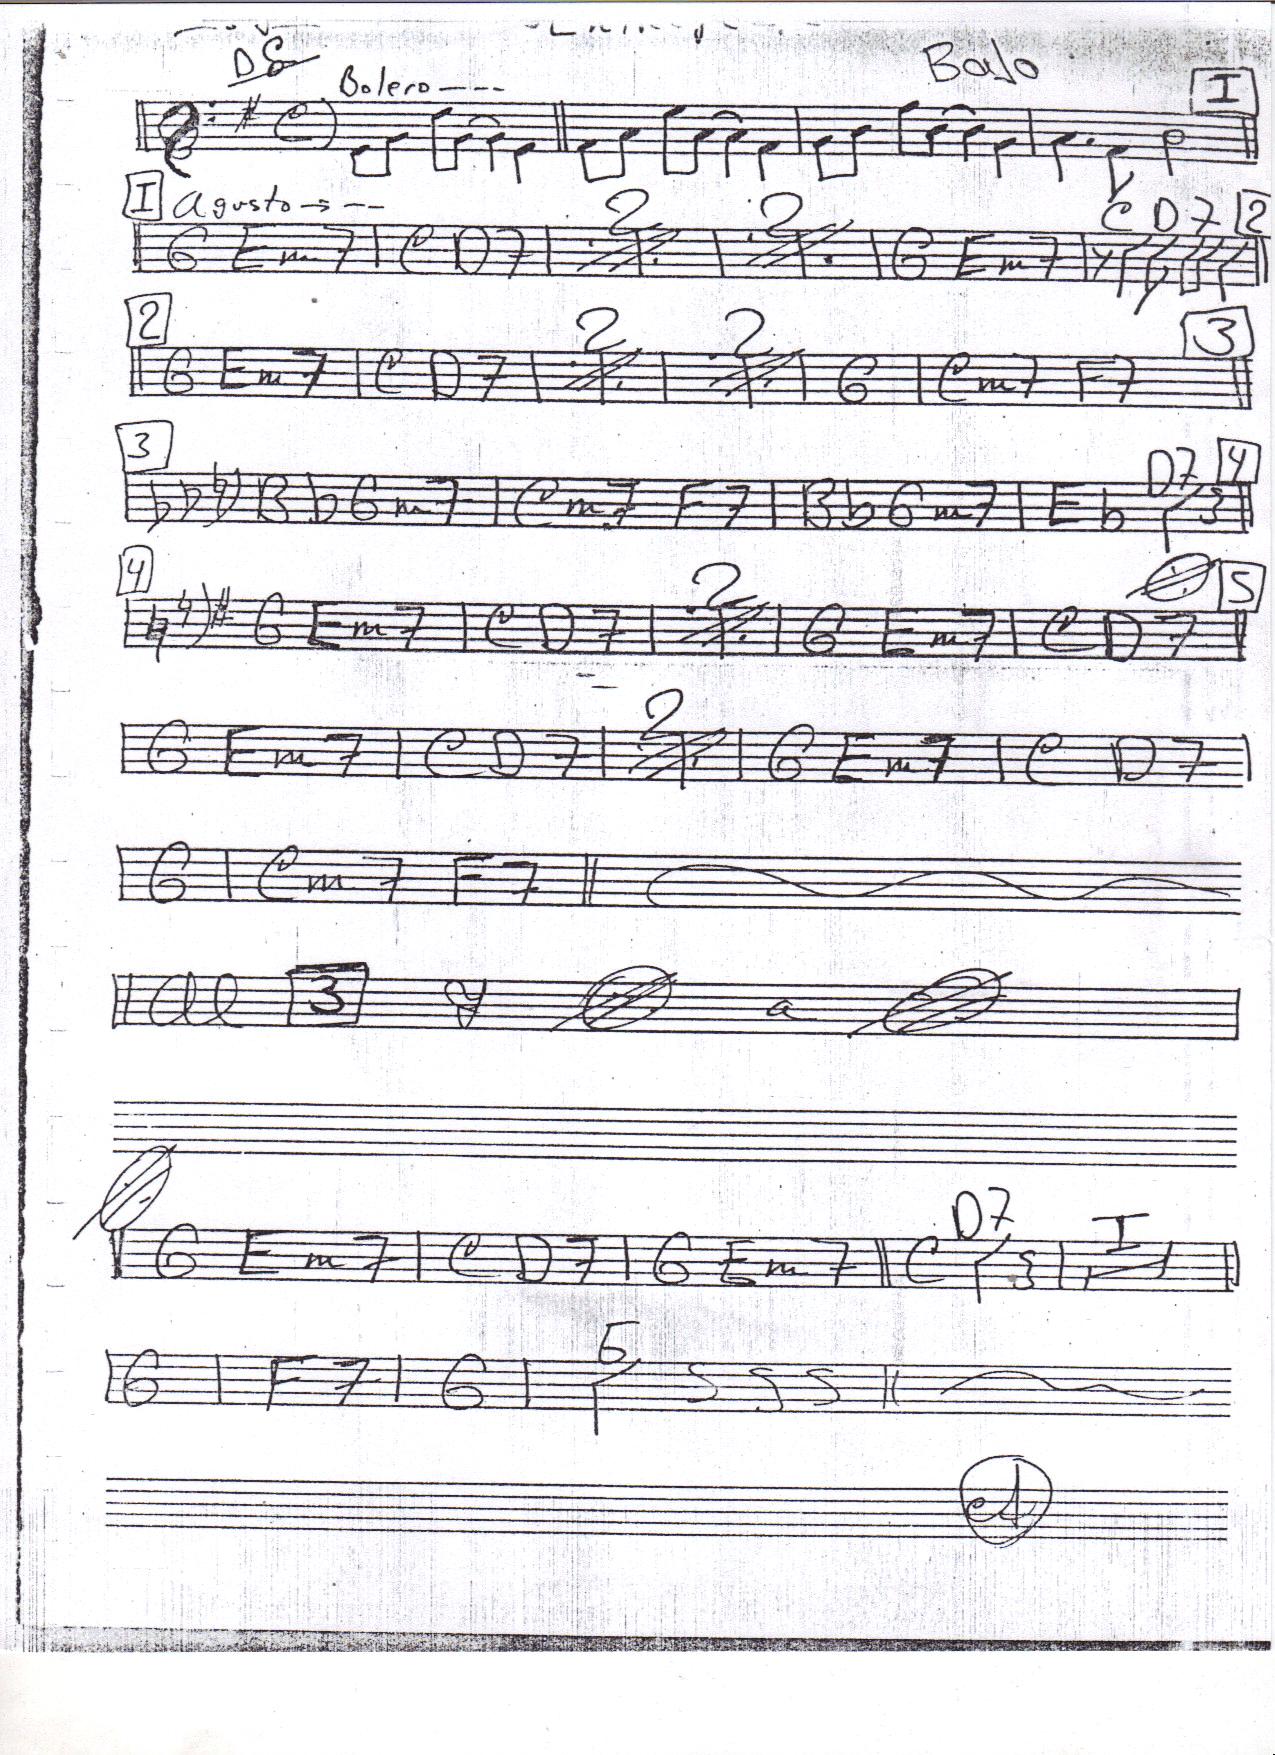 Bajo
Bolero ----
I
I a gusto → --
C D7 2
G Em7 C D7 2 2 G Em7
2 3
G Em7 C D7 2 2 G Cm7 F7
3 D7 4
Bb Gm7 Cm7 F7 Bb Gm7 Eb
4 5
G Em7 C D7 2 G Em7 C D7
G Em7 C D7 2 G Em7 C D7
G Cm7 F7
al 3 y a
D7
G Em7 C D7 G Em7 C I
G F7 G G